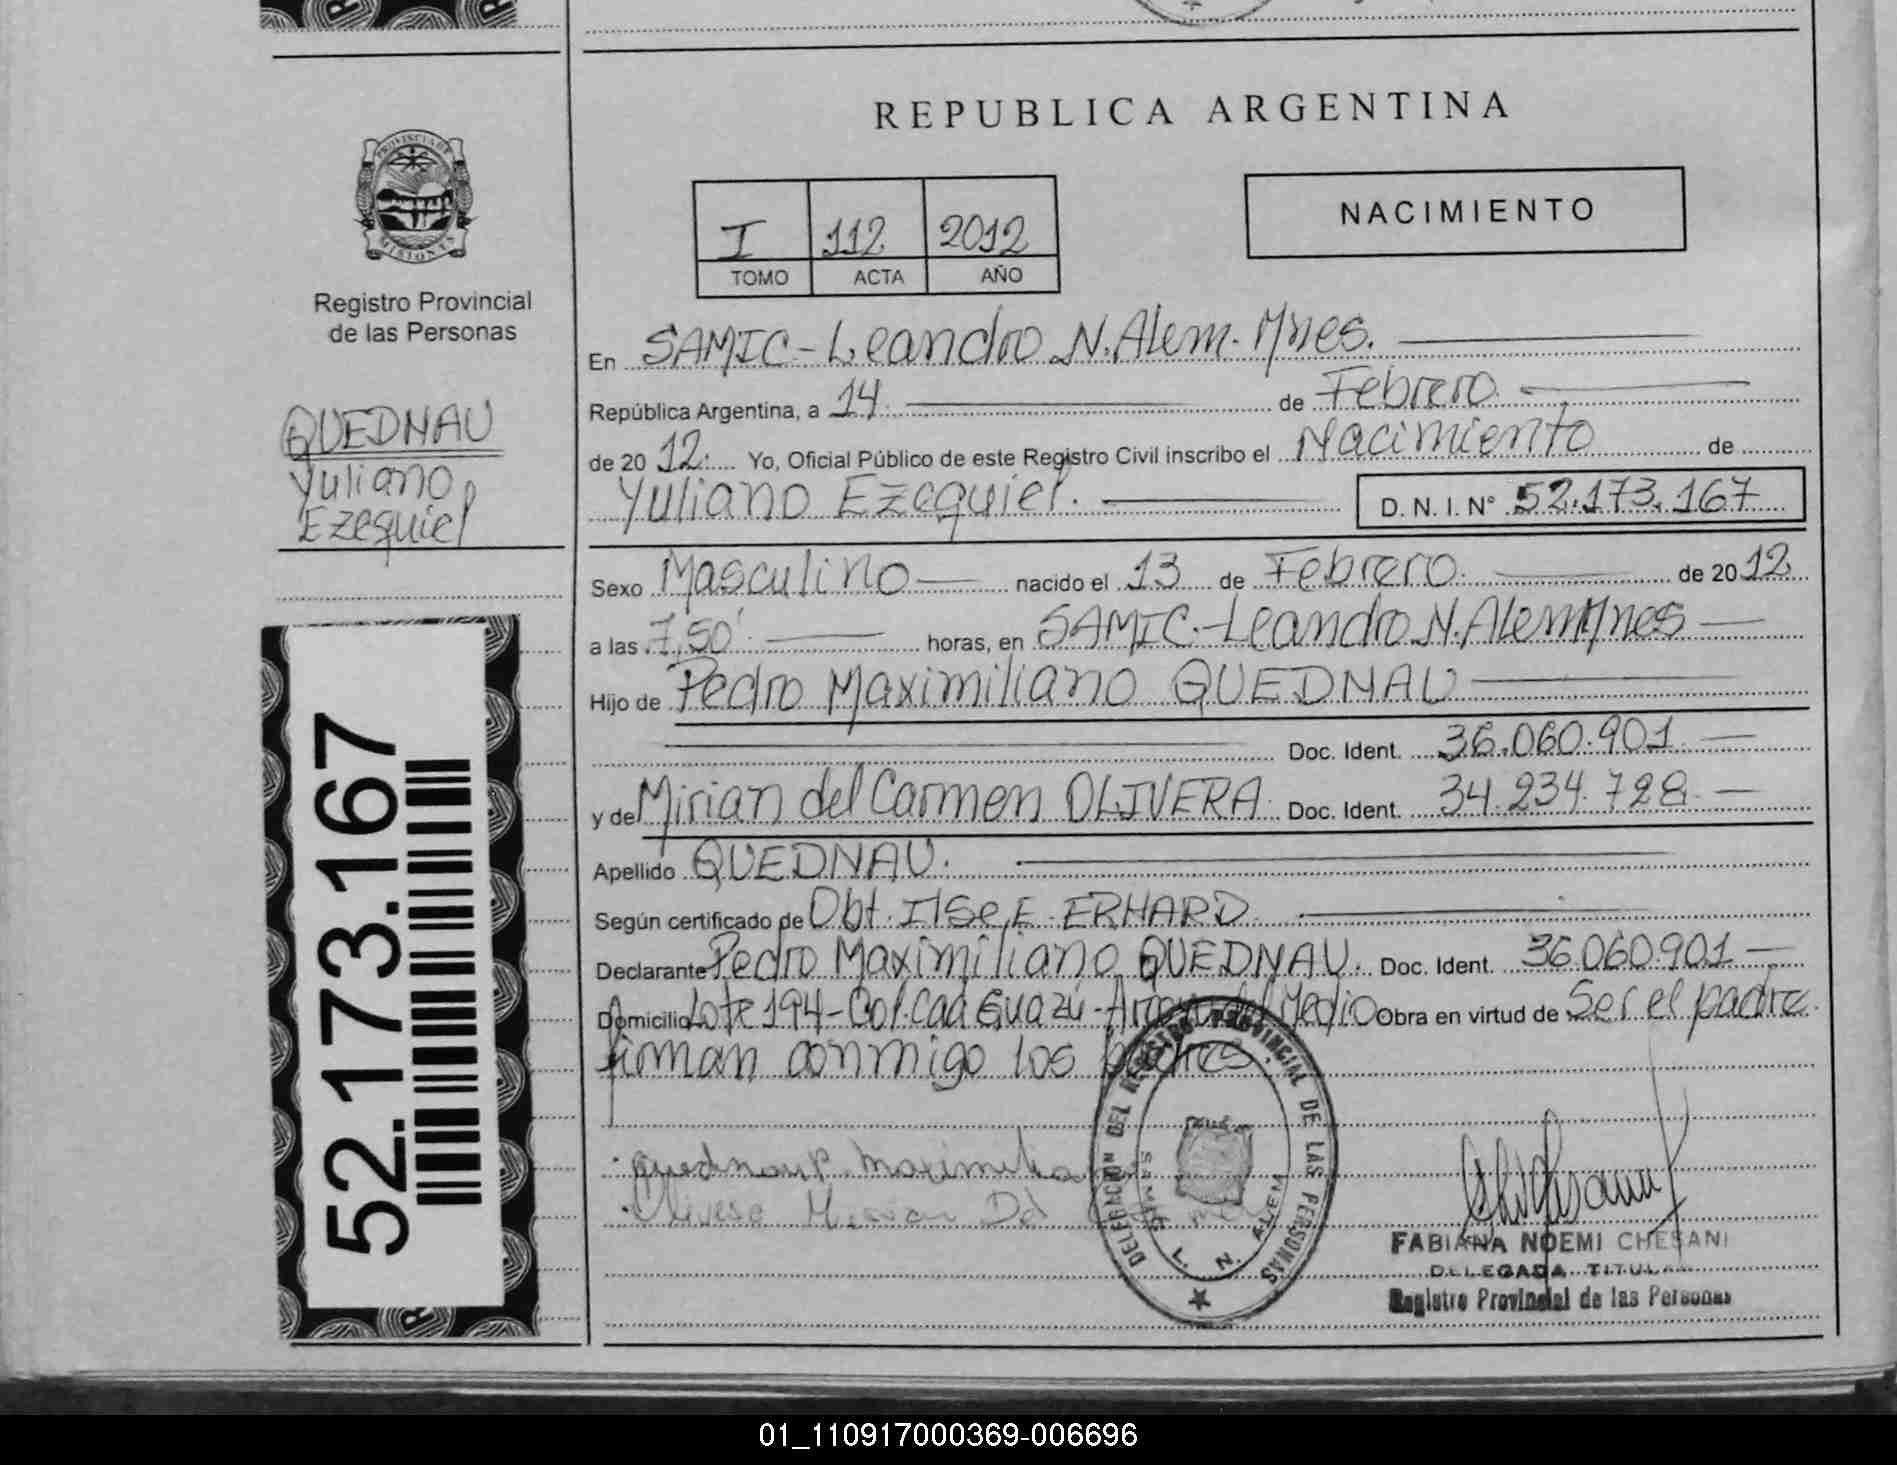 REPUBLICA ARGENTINA
PROVINCIA DE
MISIONES
Registro Provincial
de las Personas
I 112 2012
TOMO ACTA AÑO
NACIMIENTO
QUEDNAU
Yuliano
Ezequiel
52.173.167
En SAMIC-Leandro N. Alem-Mnes.
República Argentina, a 14 de Febrero
de 2012. Yo, Oficial Público de este Registro Civil inscribo el Nacimiento de
Yuliano Ezequiel. D. N. I. N° 52.173.167
Sexo Masculino nacido el 13 de Febrero. de 2012
a las 7,50' horas, en SAMIC.-Leandro N. Alem Mnes
Hijo de Pedro Maximiliano QUEDNAU
Doc. Ident. 36.060.901
y de Mirian del Carmen OLIVERA. Doc. Ident. 34.234.728
Apellido QUEDNAU.
Según certificado de Obt. Ilse E. ERHARD
Declarante Pedro Maximiliano QUEDNAU. Doc. Ident. 36.060.901
Domicilio Lote 194-Col. Caa Guazú-Arroyo del Medio Obra en virtud de Ser el padre.
firman conmigo los padres
Quednau P. Maximilia
Olivera Mirian Del
DELEGACION DEL REGISTRO PROVINCIAL DE LAS PERSONAS
L. N. ALEM
FABIANA NOEMI CHESANI
DELEGADA TITULAR
Registro Provincial de las Personas
01_110917000369-006696